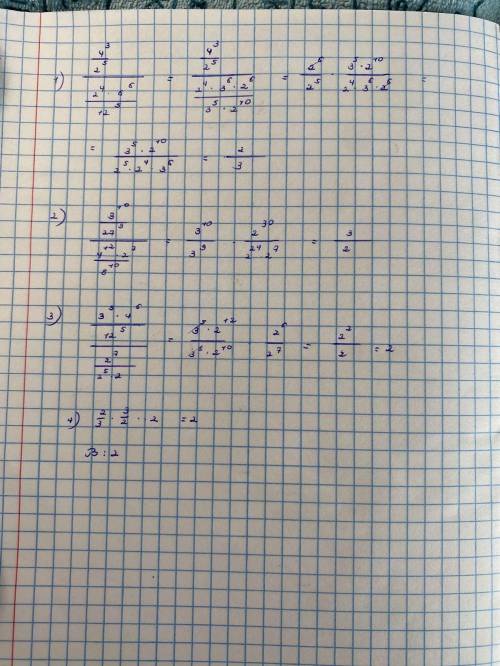 1) \frac{\frac{4^3}{2^5}}{\frac{2^4 \cdot 6^6}{12^5}} = \frac{\frac{4^3}{2^5}}{\frac{2^4 \cdot 3^6 \cdot 2^6}{3^5 \cdot 2^{10}}} = \frac{2^6}{2^5} \cdot \frac{3^5 \cdot 2^{10}}{2^4 \cdot 3^6 \cdot 2^6} =
= \frac{3^5 \cdot 2^{10}}{2^5 \cdot 2^4 \cdot 3^6} = \frac{2}{3}
2) = \frac{3^{10}}{3^9} \cdot \frac{2^{30}}{2^{24} \cdot 2^7} = \frac{3}{2}
3) \frac{\frac{3^5 \cdot 4^6}{12^5}}{\frac{2^7}{2^5 \cdot 2}} = \frac{3^5 \cdot 2^{12}}{3^5 \cdot 2^{10}} \cdot \frac{2^6}{2^7} = \frac{2^2}{2} = 2
4) \frac{2}{3} \cdot \frac{3}{2} \cdot 2 = 2
B: 2